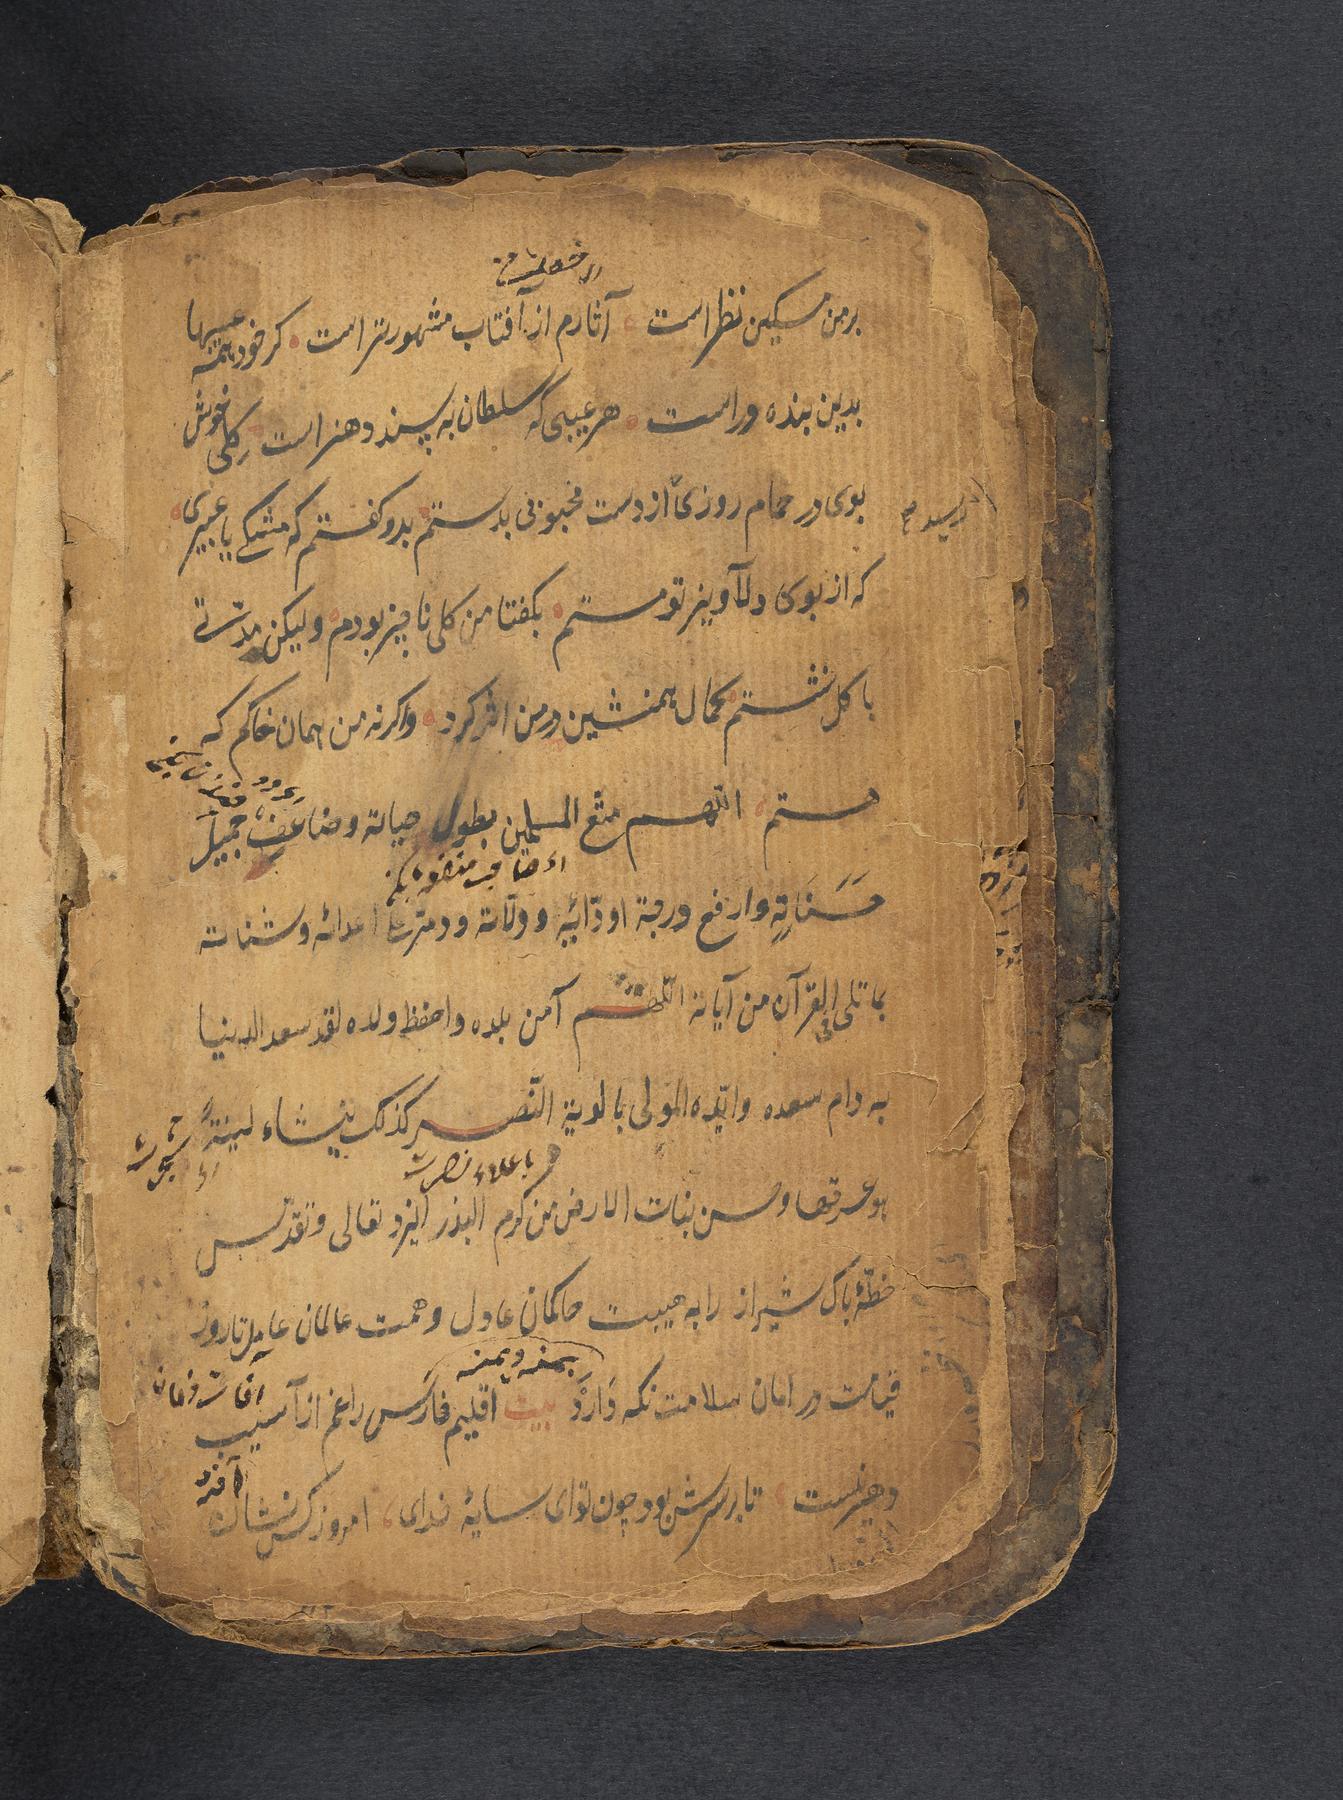 بر من مسکین نظر است آثارم از آفتاب مشهورتر است کر خود همه عیبها
بدین بنده در است هر عیبی که سلطان به پسندد هنر است کلی خوش
بوی در حمام روزی از دست محبوبی بدستم بدو کفتم که مشکی یا عبیری
رسید صح
که از بوی دلاویز تو مستم بکفتا من کلی ناچیز بودم ولیکن مدّتی
با کل نشستم کمال همنشین در من اثر کرد واکرنه من همان خاکم که
هستم اللّهم متّع المسلمین بطول حیاته وضاعف جمیل
حَسَناتِهِ وارفع درجة اودّائِهِ وولاته ودمّر علی اعدائه وشناته
بما تلی فی القرآن من آیاته اللّهم آمن بلده واحفظ ولده لقد سعد الدنیا
به دام سعده وایّده المولی بالویة النّصر کذلک ینشاء لینةٌ
هو عرقها وحسن نبات الارض من کرم البذر ایزد تعالی وتقدّس
خطّهٔ پاک شیراز را به هیبت حاکمان عادل وهمت عالمان عامل تا روز
قیامت در امان سلامت نکه دَارَدْ بیت اقلیم فارَس را غم از آسیب
دهر نیست تا بر سرش بود چون تو ای سایهٔ خدای امروز کس نشان